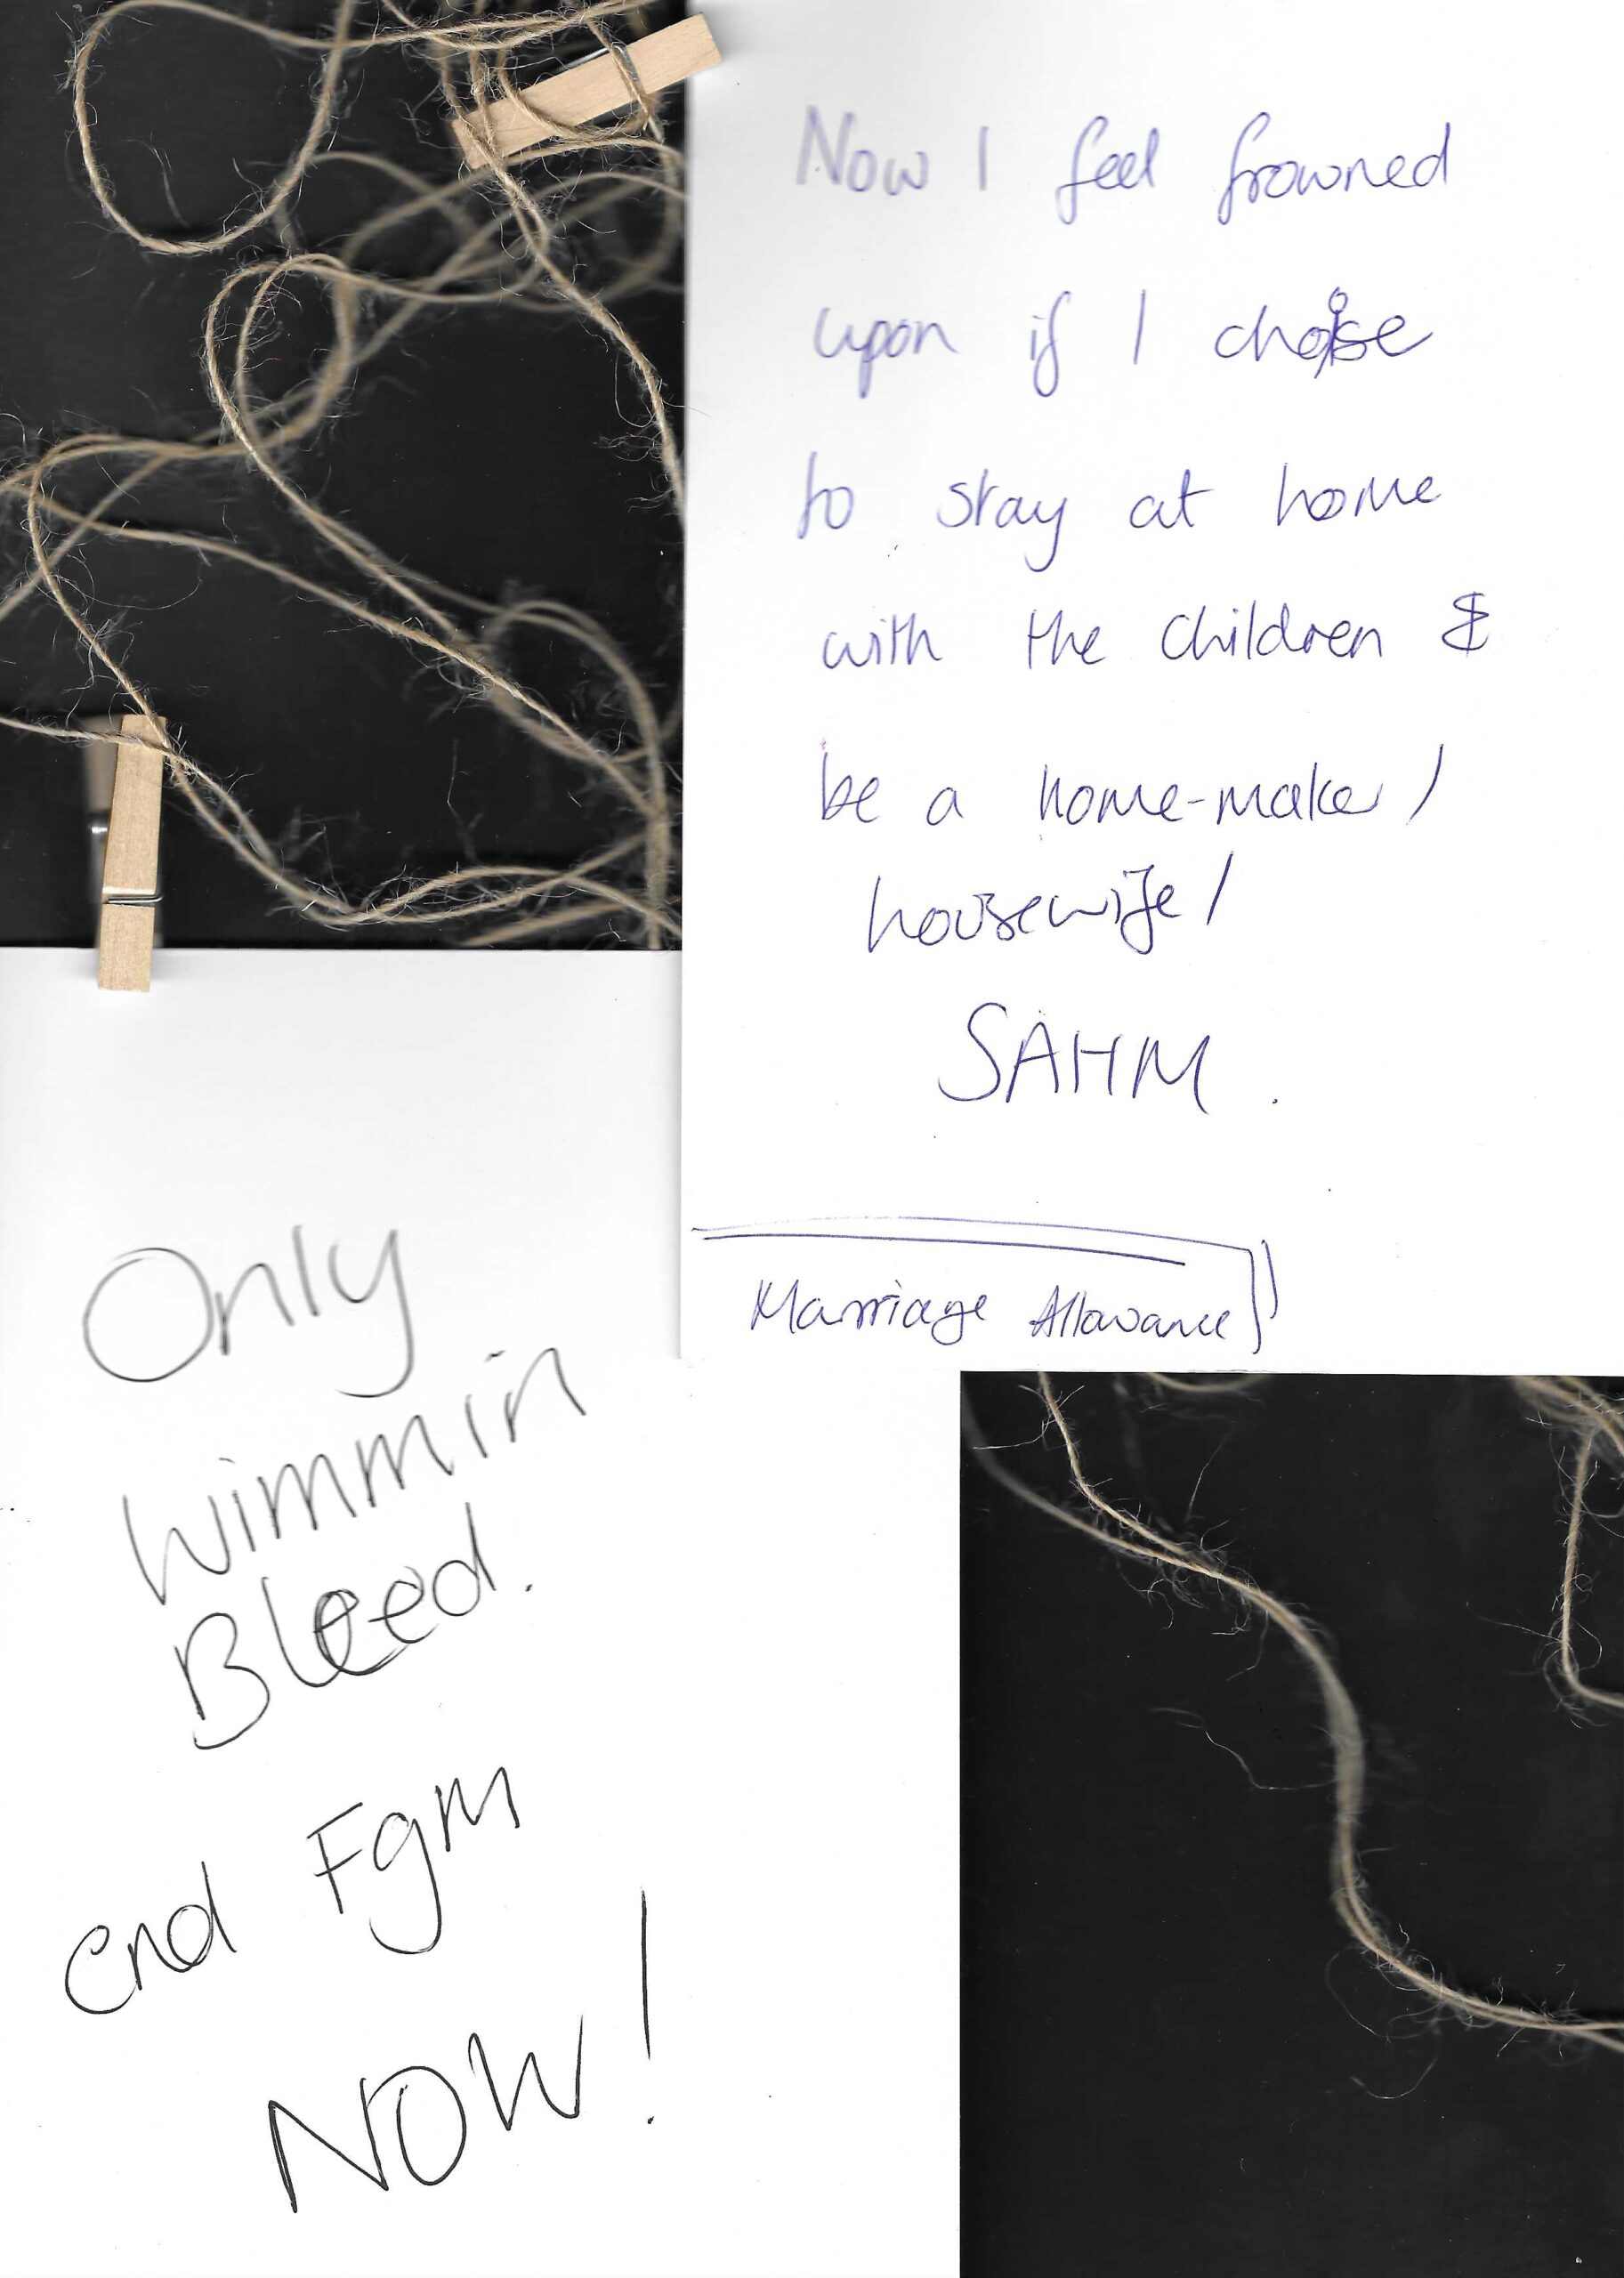 Now I feel frowned
upon if I choise
to stay at home
with the children &
be a home-maker /
housewife /
SAHM.
Marriage Allowance
Only
Wimmin
Bleed.
end Fgm
NOW!